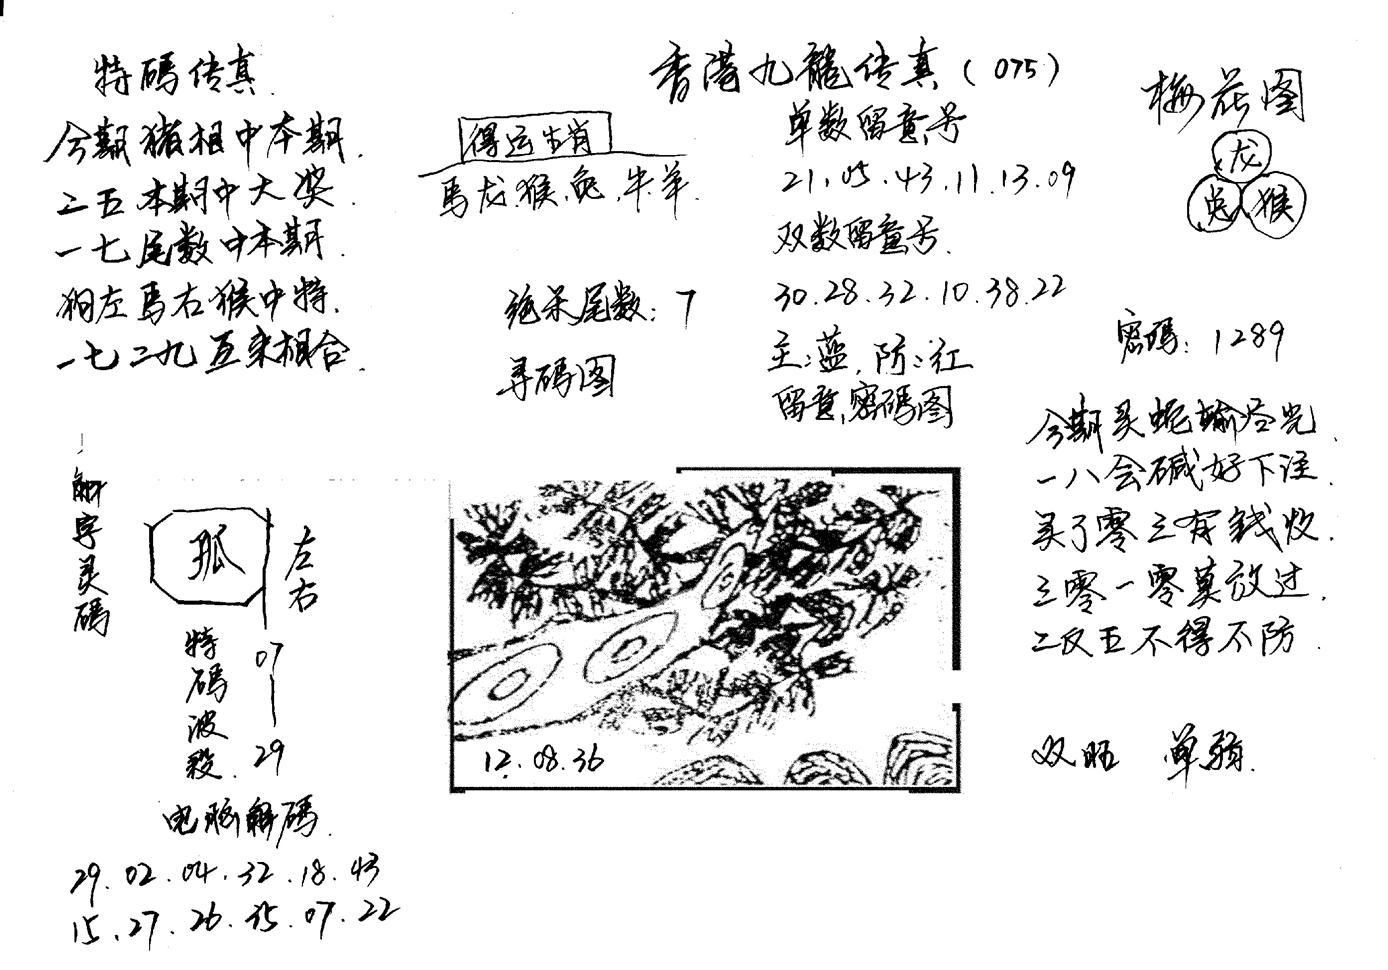 特碼传真.
今期猪相中本期.
二五本期中大奖.
一七尾数中本期.
狗左马右猴中特.
一七二九互来相合.
得运生肖
马龙.猴.兔.牛.羊.
绝杀尾数：7
寻码图
香港九龍传真（075）
单数留意号
21.05.43.11.13.09
双数留意号.
30.28.32.10.38.22
主：蓝.防：红
留意密码图
梅花图
龙
兔 猴
密碼：1289
今期灵蛇输尽光.
一八会碱好下注.
买了零三有钱收.
三零一零莫放过.
二反五不得不防.
双旺 单弱.
解字灵碼
孤
左右
特碼波段.
07
29
12.08.36
电脑解碼.
29.02.04.32.18.43
15.27.26.35.07.22